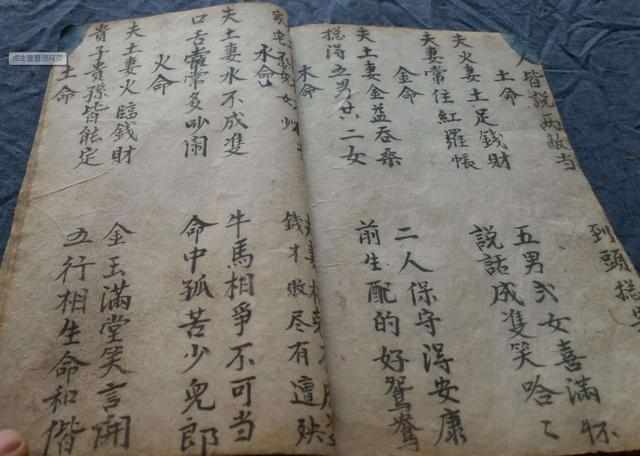 人皆說兩敵当
到頭
土命
夫火妻土足錢財
五男弍女喜滿怀
夫妻常住紅羅帳
說話成雙笑哈々
金命
夫土妻金益
二人保守得安康
二女
前生配的好鴛鴦
木命
錢才敗尽有遭殃
水命
夫土妻水不成雙
牛馬相爭不可当
口舌常常多吵闹
命中孤苦少兒郎
火命
夫土妻火臨錢財
金玉滿堂笑言開
貴子貴孫皆能定
五行相生命和偕
土命